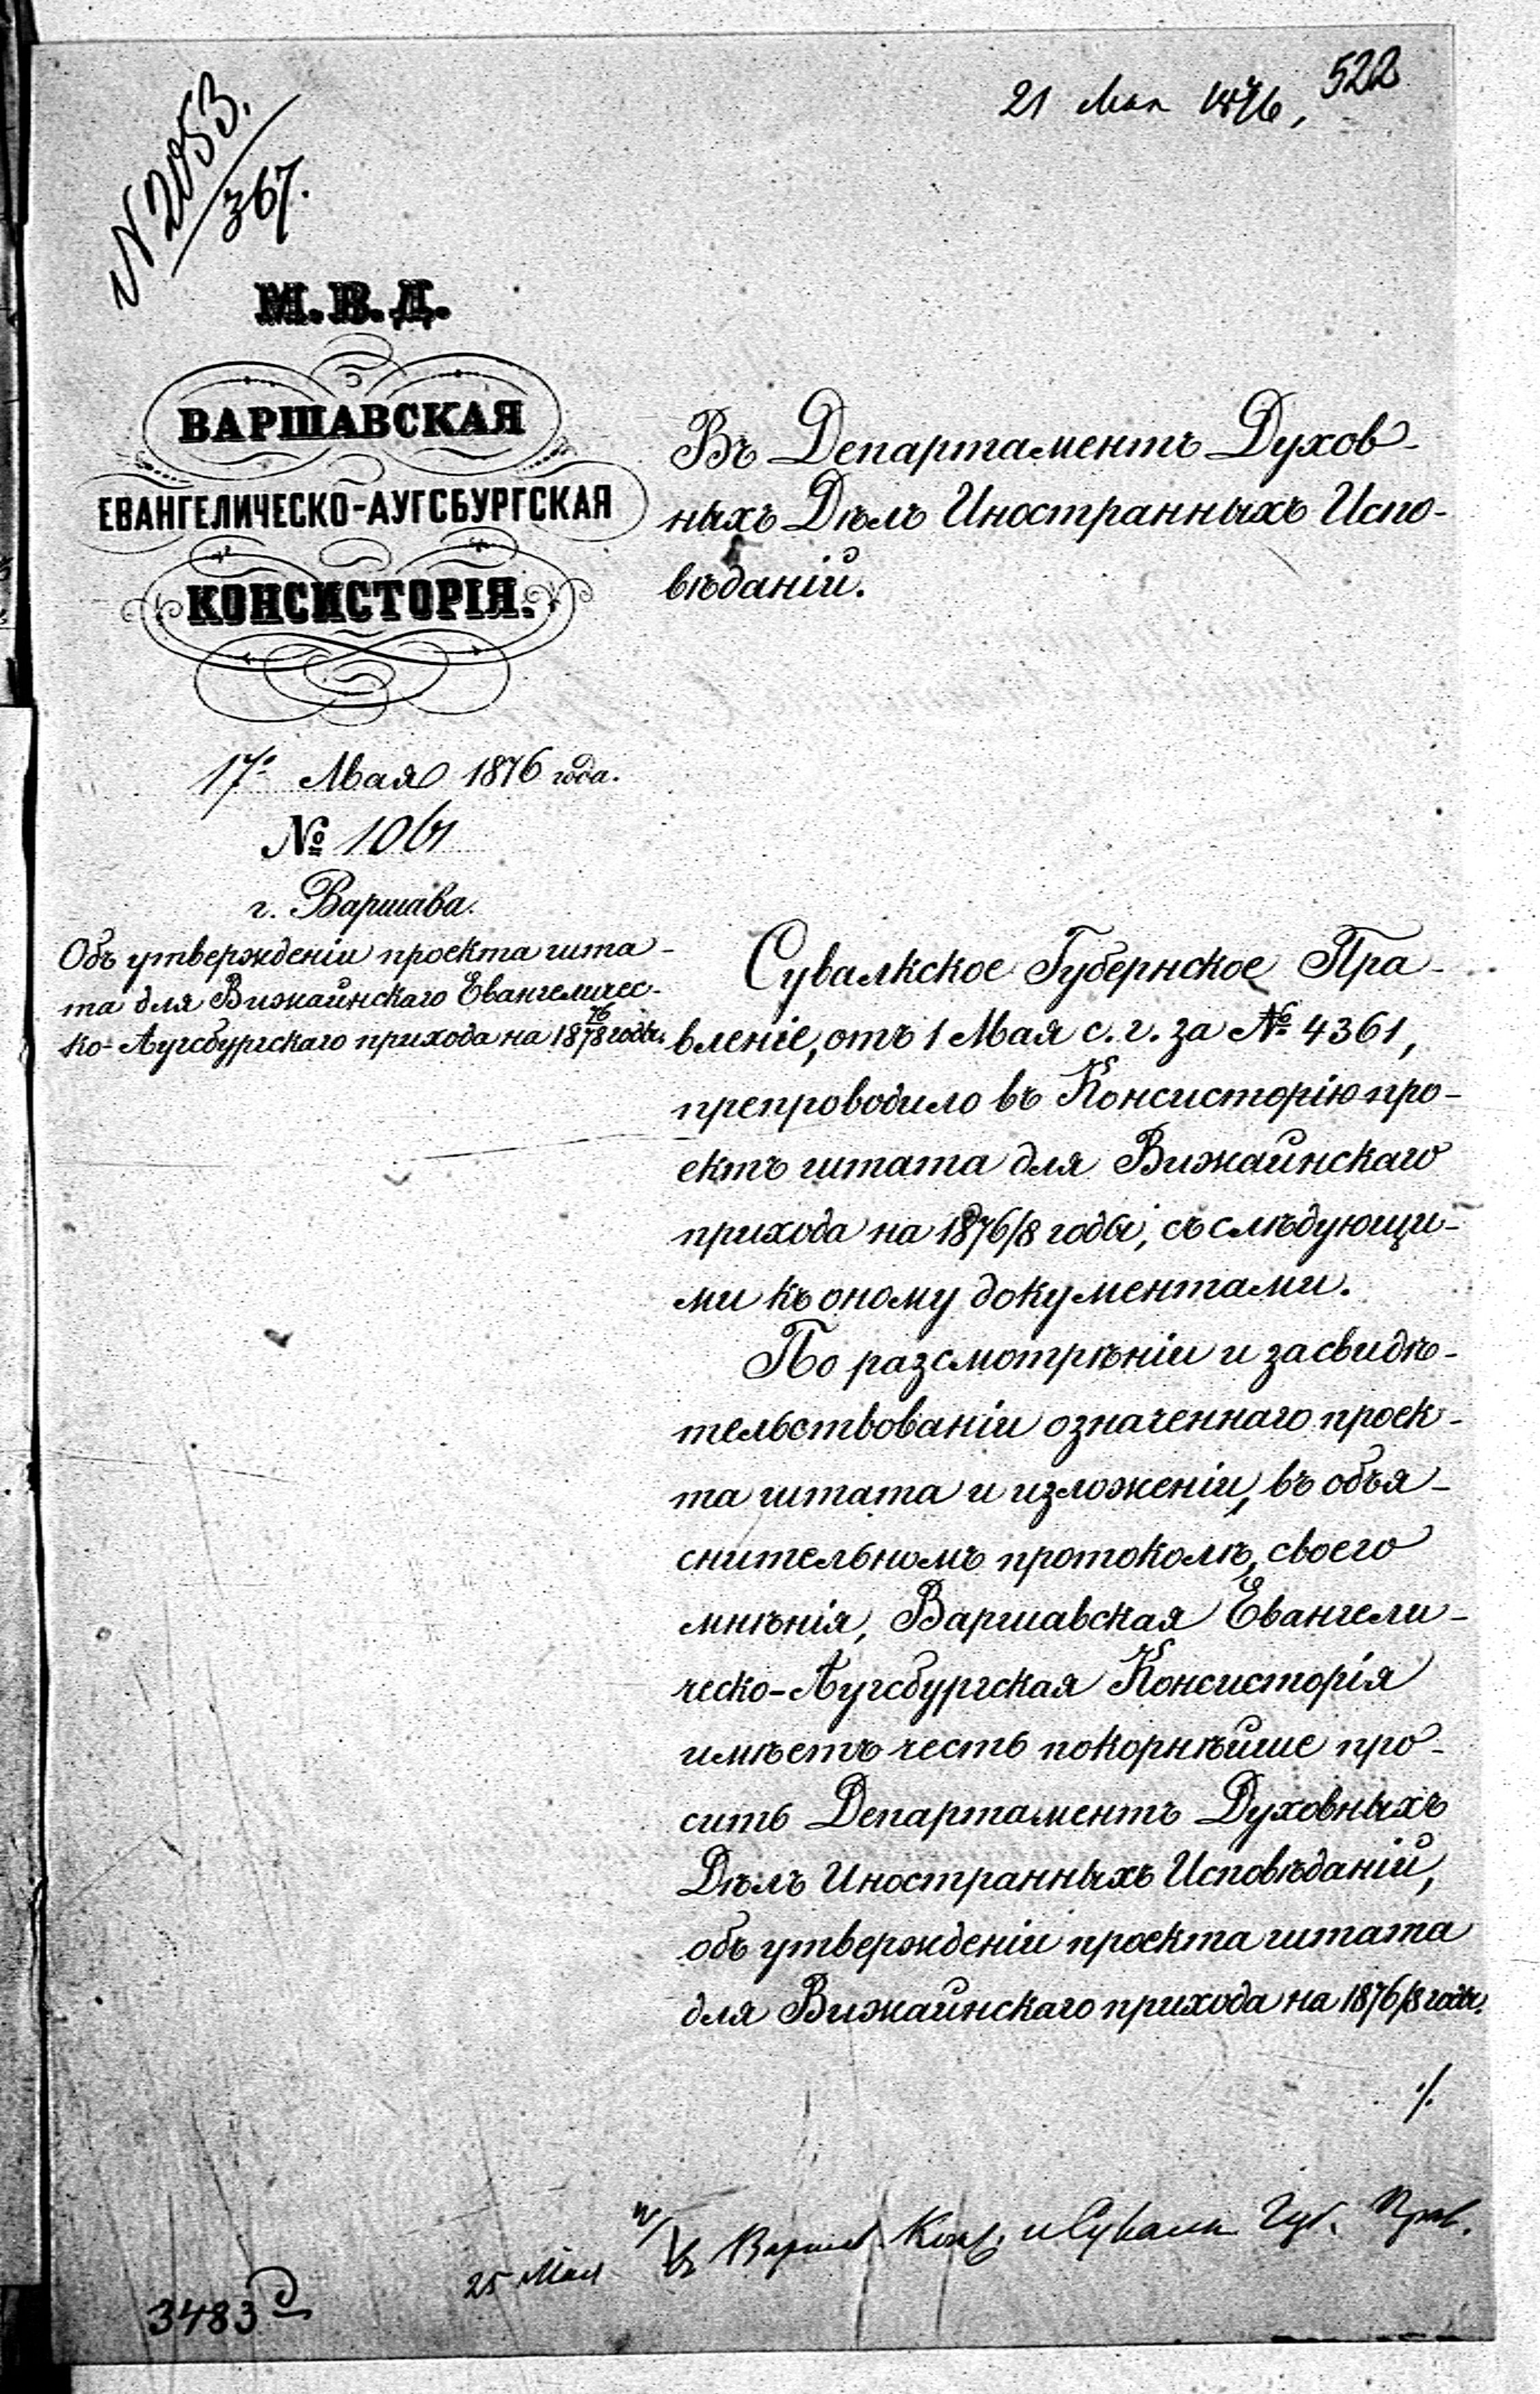 21 Мая 1876, 522
N 2053.
367.
М.В.Д.
ВАРШАВСКАЯ
ЕВАНГЕЛИЧЕСКО-АУГСБУРГСКАЯ
КОНСИСТОРІЯ.
17 Мая 1876 года.
№ 1061
г. Варшава.
Объ утвержденіи проекта шта-
та для Вижайнскаго Евангеличес-
ко-Аугсбургскаго прихода на 18 76/78 годы.
Въ Департаментъ Духов-
ныхъ Дѣлъ Иностранныхъ Испо-
вѣданій.
Сувалкское Губернское Пра-
вленіе, отъ 1 Мая с. г. за № 4361,
препроводило въ Консисторію про-
ектъ штата для Вижайнскаго
прихода на 1876/8 годы, съ слѣдующи-
ми къ оному документами.
По разсмотрѣніи и засвидѣ-
тельствованіи означеннаго проек-
та штата и изложеніи, въ объя-
снительномъ протоколѣ, своего
мнѣнія, Варшавская Евангели-
ческо-Аугсбургская Консисторія
имѣетъ честь покорнѣйше про-
сить Департаментъ Духовныхъ
Дѣлъ Иностранныхъ Исповѣданій,
объ утвержденіи проекта штата
для Вижайнскаго прихода на 1876/8 годы.
./.
25 Мая въ Варшав. Конс. и Сувалк. Губ. Прав.
3483